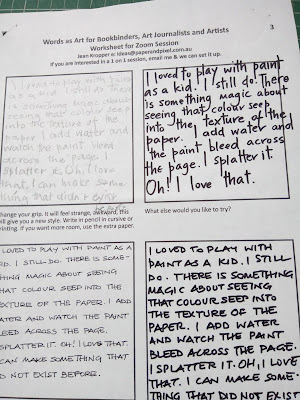 Words as Art for Bookbinders, Art Journalists and Artists
3
Worksheet for Zoom Session
Jean Kropper e: ideas@paperandpixel.com.au
If you are interested in a 1 on 1 session, email me & we can set it up.
I loved to play with paint
as a kid. I still do. There
is something magic about
seeing that colour seep
into the texture of the
paper. I add water and
watch the paint bleed
across the page. I
splatter it. Oh! I love
that. I can make some
thing that didn't exist
I loved to play with paint
as a kid. I still do. There
is something magic about
seeing that colour seep
into the texture of the
paper. I add water and
the paint bleed across
the page. I splatter it.
Oh! I love that.
hange your grip. It will feel strange, awkward, this
ill give you a new style. Write in pencil in cursive or
rinting. If you want more room, use the extra paper.
What else would you like to try?
LOVED TO PLAY WITH PAINT AS A
KID. I STILL DO. THERE IS SOME-
THING MAGIC ABOUT SEEING
HAT COLOUR SEEP INTO THE
EXTURE OF THE PAPER. I ADD
WATER AND WATCH THE PAINT
LEED ACROSS THE PAGE.
SPLATTER IT. OH! I LOVE THAT.
CAN MAKE SOMETHING THAT
ID NOT EXIST BEFORE.
I LOVED TO PLAY WITH
PAINT AS A KID. I STILL
DO. THERE IS SOMETHING
MAGIC ABOUT SEEING
THAT COLOUR SEEP INTO
THE TEXTURE OF THE
PAPER. I ADD WATER
AND WATCH THE PAINT
BLEED ACROSS THE PAGE.
I SPLATTER IT. OH, I LOVE
THAT. I CAN MAKE SOME-
THING THAT DID NOT EXIST